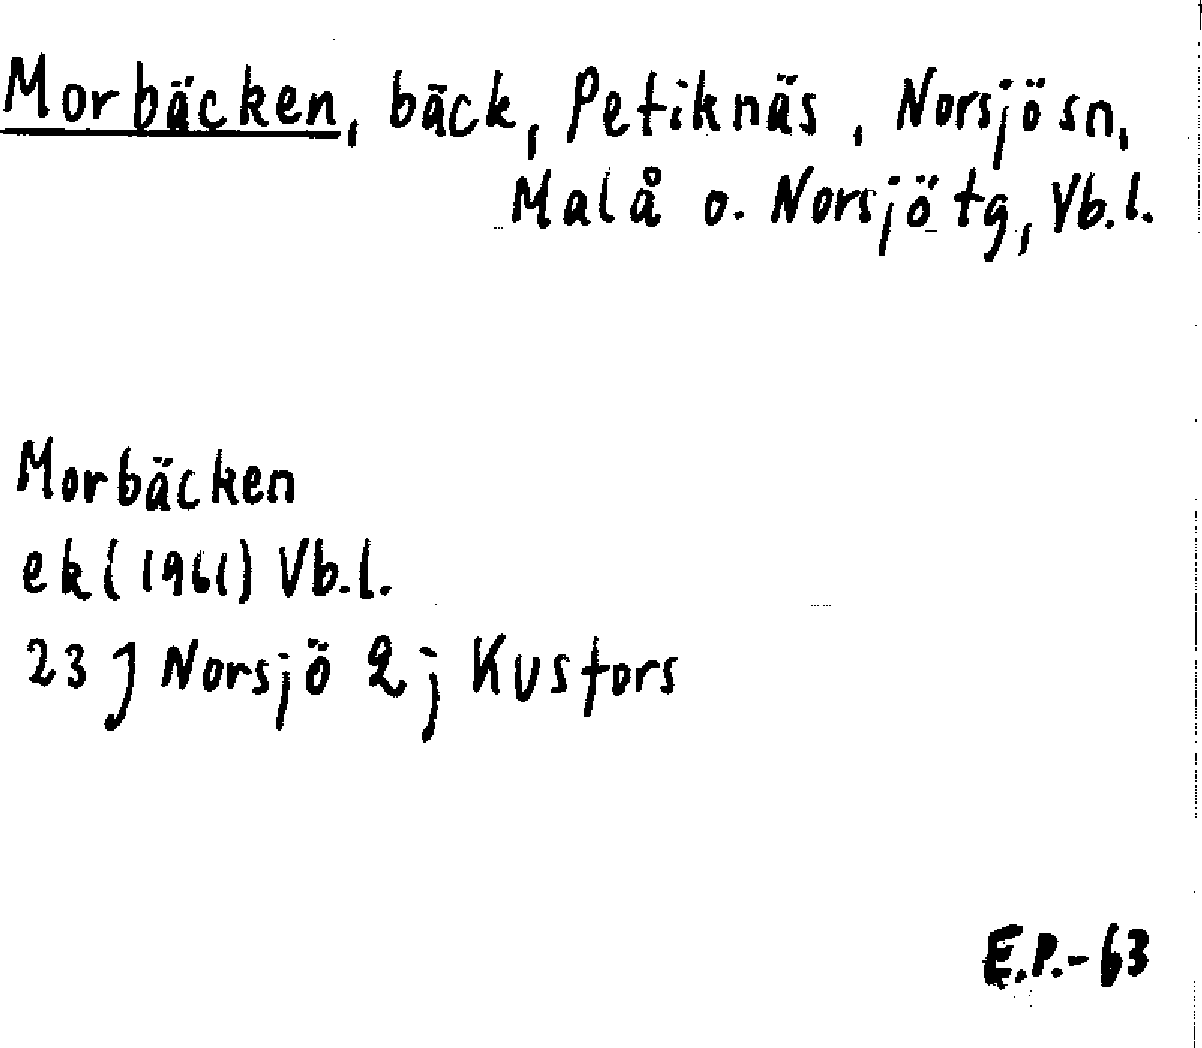 Morbäcken, bäck, Petiknäs, Norsjö sn,
Malå o. Norsjö tg, Vb.l.
Morbäcken
ek (1961) Vb.l.
23 J Norsjö 2 j Kusfors
E.P.-63